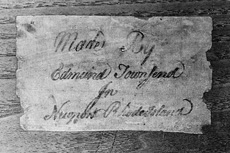 Made By
Edmund Townsend
In
Newport Rhode Island